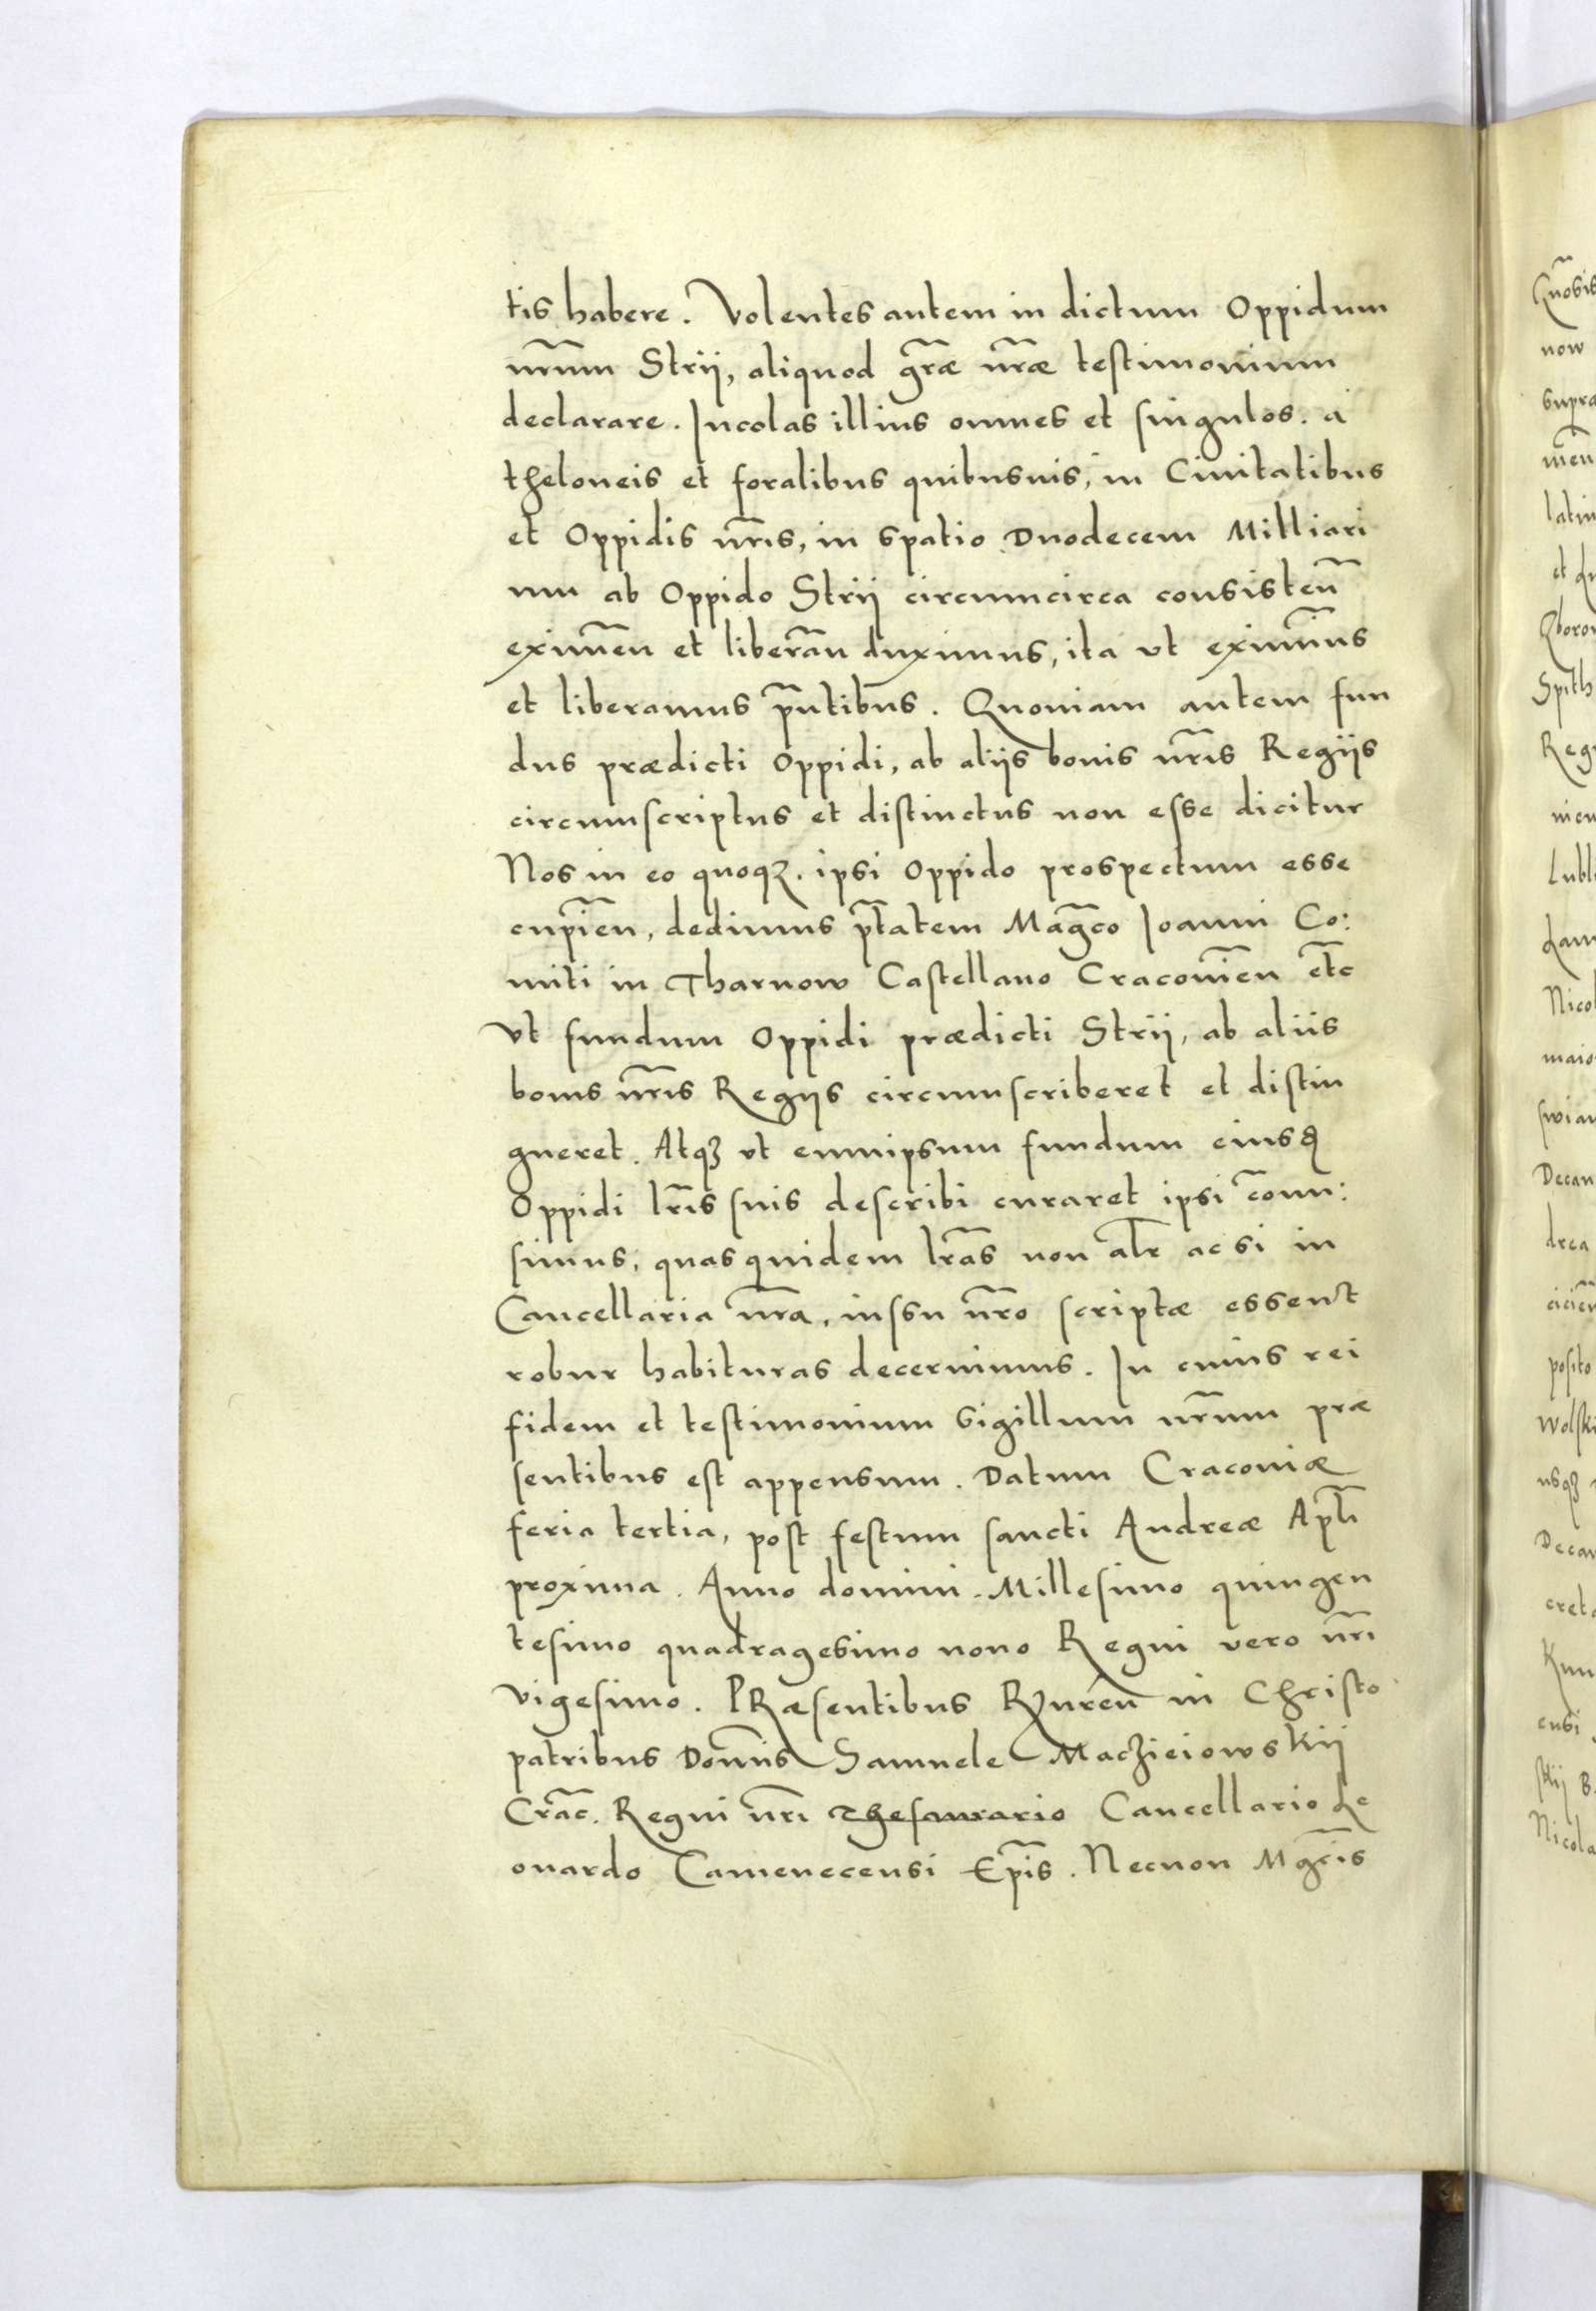 tis habere. Volentes autem in dictum Oppidum
nr̄um Strij, aliquod gr̄æ nr̄æ testimonium
declarare. Incolas illius omnes et singulos. a
theloneis et foralibus quibusuis, in Ciuitatibus
et Oppidis nr̄is, in spatio Duodecem Milliari
um ab Oppido Strij circumcirca consisteñ
eximeñ et liberañ duximus, ita vt eximim̄us
et liberamus pñtibus. Quoniam autem fun
dus prædicti Oppidi, ab alijs bonis nr̄is Regijs
circumscriptus et distinctus non esse dicitur
Nos in eo quoqꝫ. ipsi Oppido prospectum esse
cupieñ, dedimus pt̄atem Mag̃co Ioanni Co:
miti in Tharnow Castellano Cracovieñ etc̃
Vt fundum Oppidi prædicti Strij, ab aliis
bonis nr̄is Regijs circumscriberet et distin
gueret. Atqꝫ vt eumipsum fundum eiusd
Oppidi lr̄is suis describi curaret ipsi com̄i:
simus, quas quidem lr̄as non alr̄ ac si in
Cancellaria nr̄a, iussu nr̄o scriptæ essent
robur habituras decernimus. In cuius rei
fidem et testimonium Sigillum nr̄um præ
sentibus est appensum. Datum Cracouiæ
feria tertia, post festum sancti Andreæ Apl̄i
proxima. Anno domini. Millesimo quingen
tesimo quadragesimo nono Regni vero nr̄i
vigesimo. PRæsentibus Rꝫureñ in Christo
patribus Domñis Samuele Maczieiowskij
Crac̃. Regni nr̄i Thesaurario Cancellario Le
onardo Camenecensi Ep̄is. Necnon Mgc̃is
Gñosis
now
supra
meñ
latin
et
Zboro
Spith
Reg
nien
Lubl
Lan
Nicol
maio
swian
Decan
drea
cicieñ
posito
Wolski
usqꝫ
Decan
creto
Kun
ensi
skij B.
Nicola